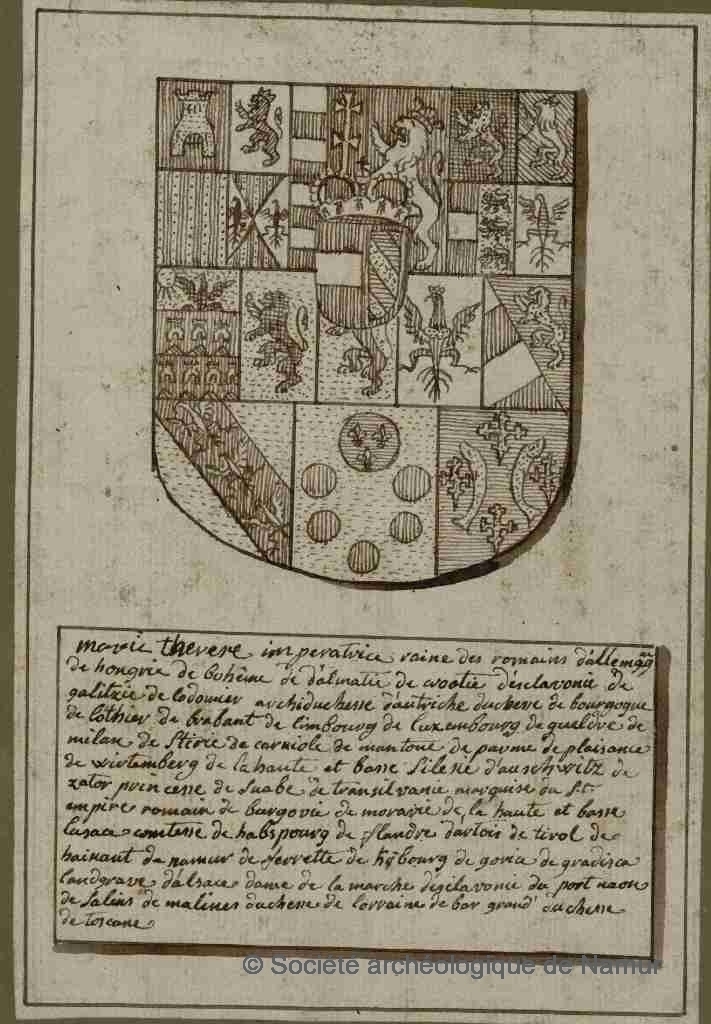 marie therese imperatrice raine des romains d'allemagne
de hongrie de bohême de d'almatie de croatie d'esclavonie de
galitzie de lodomier archiduchesse d'autriche duchesse de bourgogne
de lothier de brabant de limbourg de luxembourg de gueldre de
milan de stirie de carniole de mantoue de parme de plaisance
de wirtemberg de la haute et basse silesie d'auschwitz de
zator princesse de suabe de transilvanie marquise du St.
empire romain de burgovie de moravie de la haute et basse
lusace comtesse de habspourg de flandre d'artois de tirol de
hainaut de namur de ferrette de kÿbourg de gorice de gradisca
landgrave d'alsace dame de la marche d'esclavonie du port naon
de salins de malines duchesse de lorraine de bar grand' duchesse
de toscane
© Société archéologique de Namur